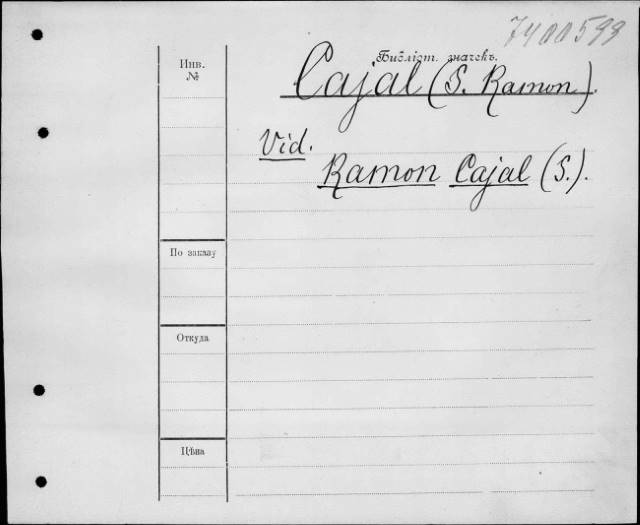 7400599
Инв.
№
Библіот. значекъ.
Cajal (S. Ramon).
Vid.
Ramon Cajal (S.).
По заказу
Откуда
Цѣна